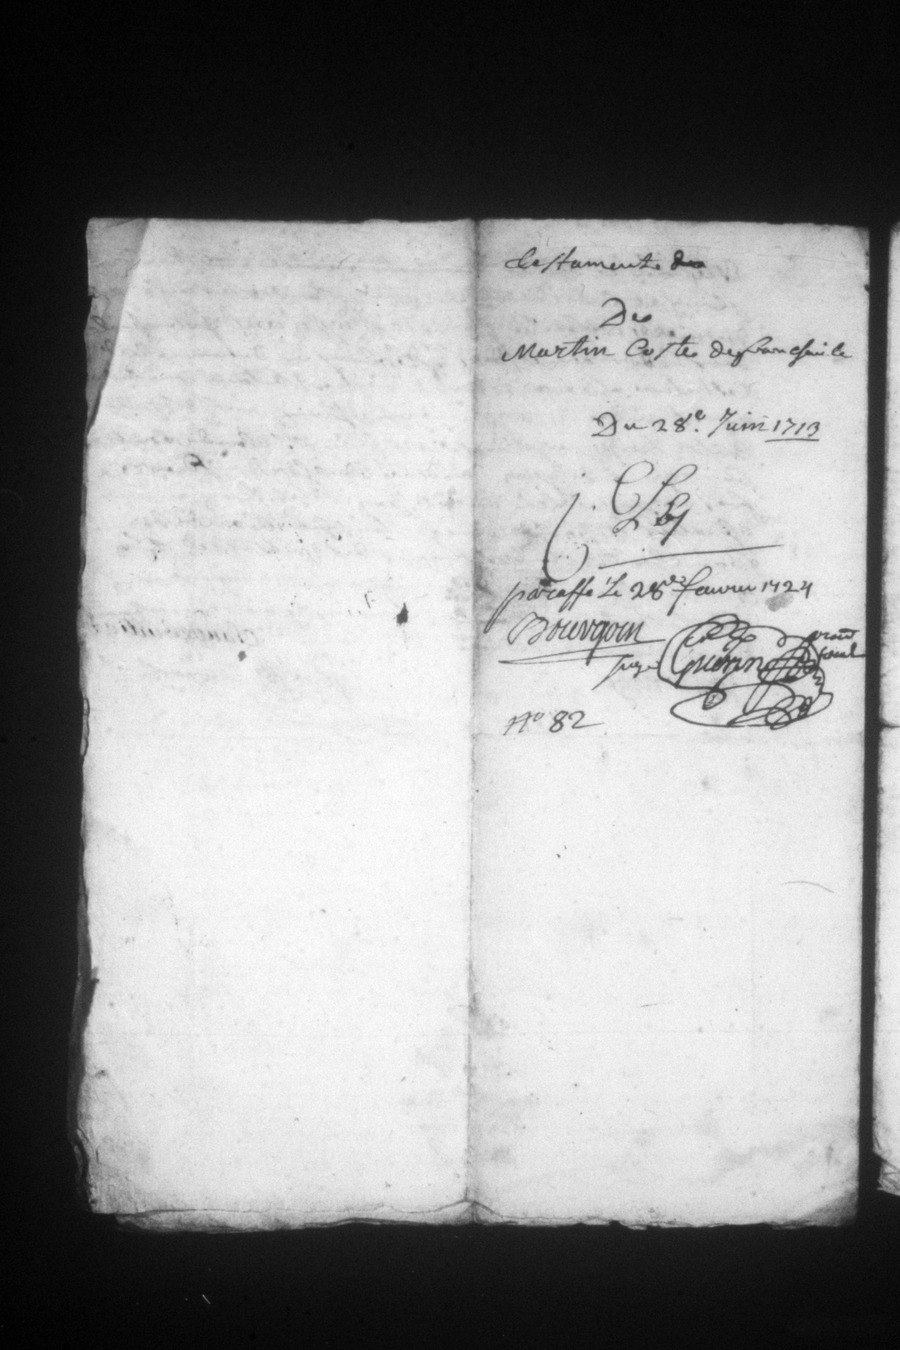 testament de
De
Martin Coste de
Du 28.e Juin 1713
paraffé le 28e feuvrier 1724
Bouvgoin
juge Guerin
No 82